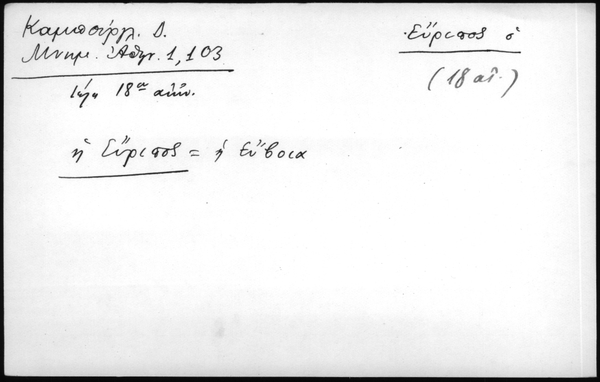 Καμπούργλ. Δ.
Μνημ. Ἀθην. 1, 103
18ου αἰών.
Εὔριπος ὁ
(18 αἰ.)
ἡ Εὔριπος = ἡ Εὔβοια